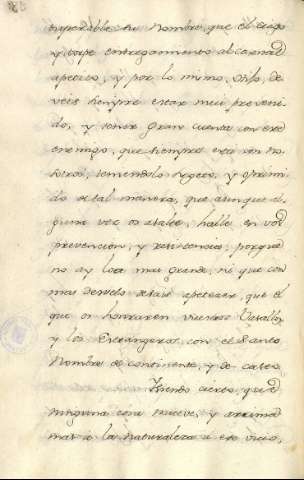 su Nombre, que el ciego
y torpe entregamiento al carnal
apetito, y por lo mismo, Sr.
veis siempre estar mui preveni
do, y tener gran cuenta con este
enemigo, que siempre está con no
sotros, teniendolo sugeto, y oprimi
do de tal manera, que aunque al
guna vez os asalte, halle en vos
prevencion, y resistencia; porque
no ay cosa mas grande, ni que con
mas desvelo deveis apetecer, que el
que os honrasen vuestros Vasallos
y los Estrangeros con el Santo
Nombre de continente, y de casto.
Siendo cierto, que
ninguna cosa mueve, y arrima
mas a la naturaleza a este vicio,